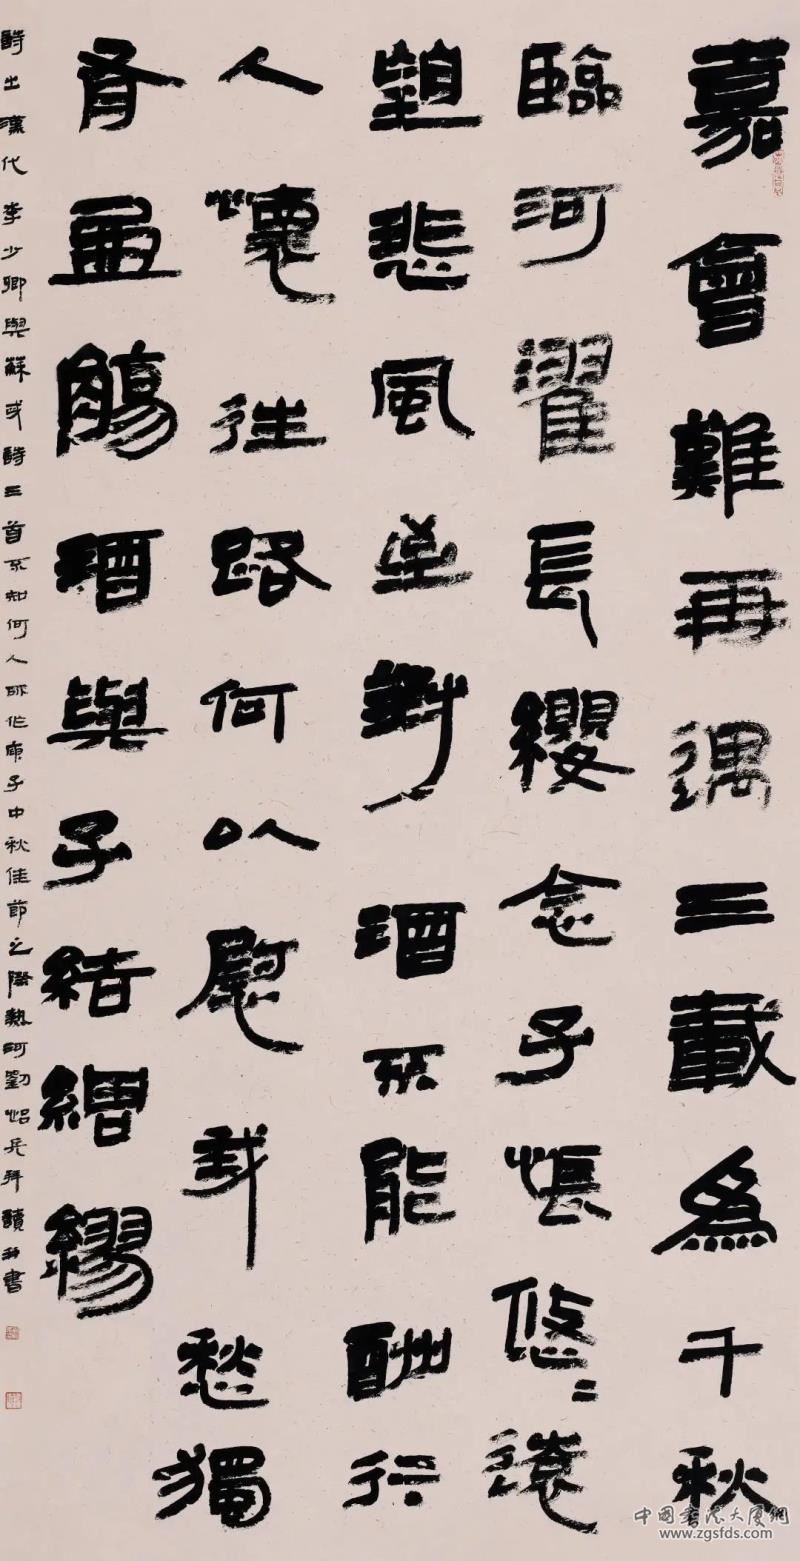 嘉會難再遇三載爲千秋
臨河濯長纓念子悵悠〻遠
望悲風至對酒不能酬行
人懷往路何以慰我愁獨
有盈觴酒與子結綢繆
詩出漢代李少卿與蘇武詩三首不知何人所作庚子中秋佳節之際熱河劉兵拜讀并書
中國書法大厦網
www.zgsfds.com